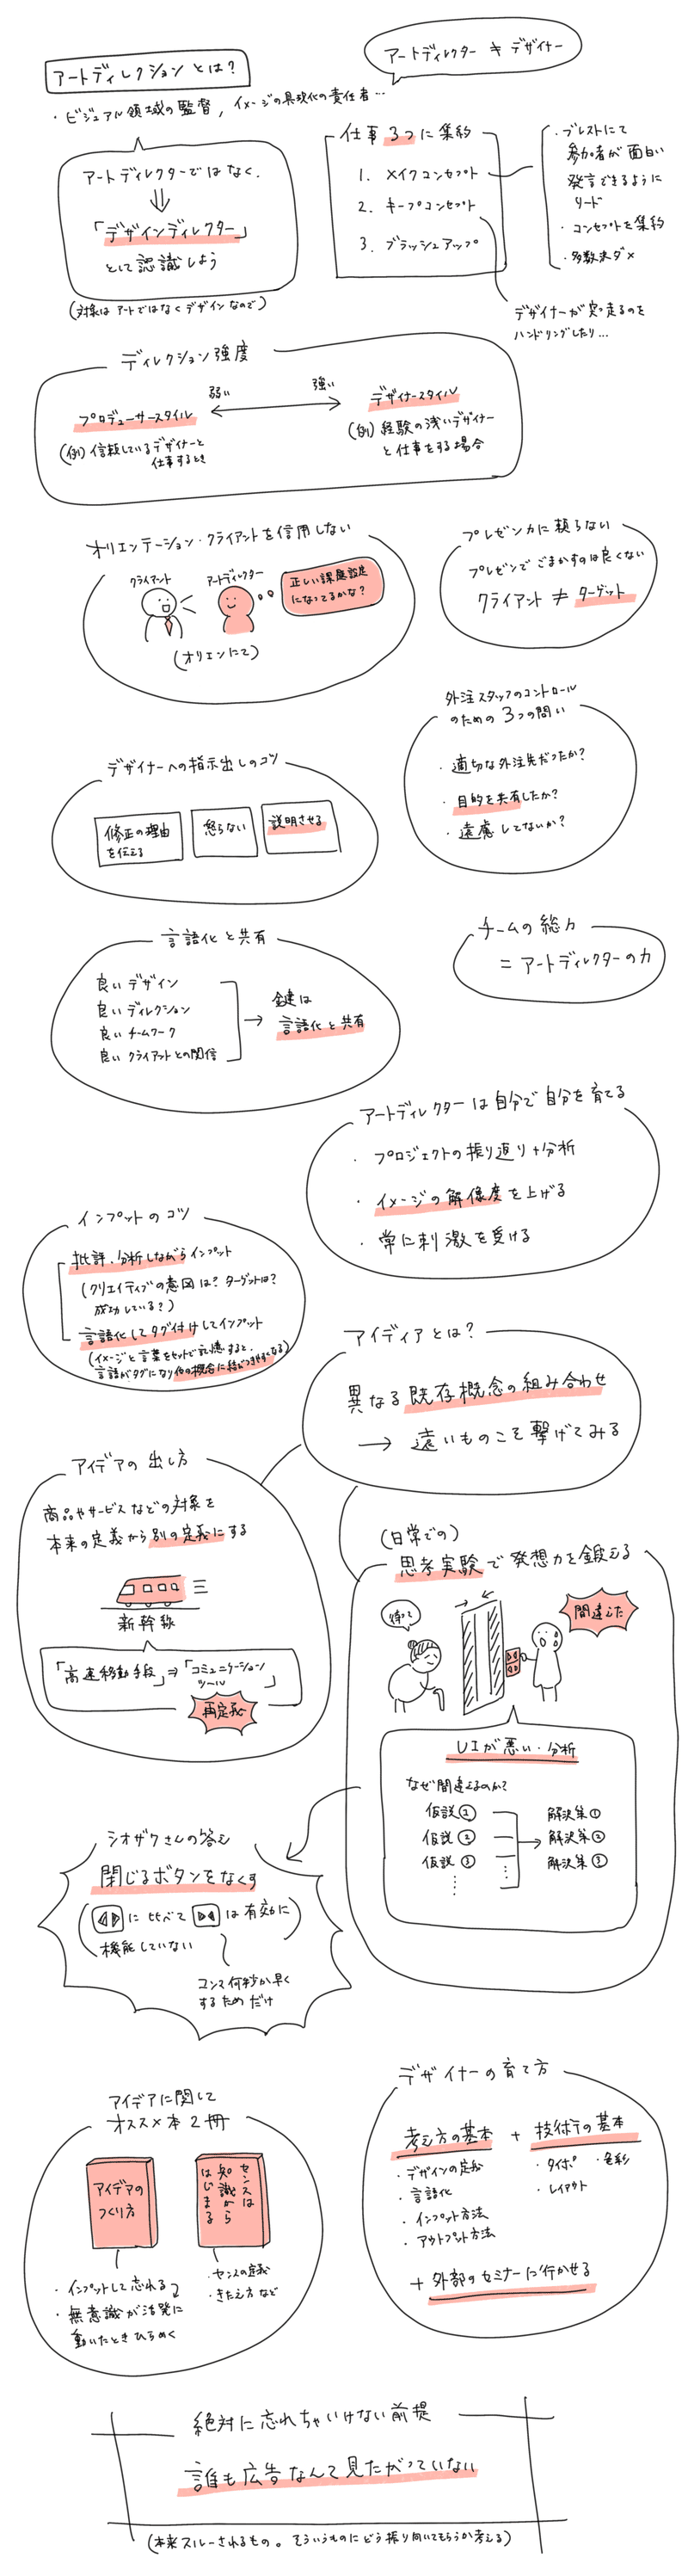 アートディレクションとは?
アートディレクター ≠ デザイナー
・ビジュアル領域の監督, イメージの具現化の責任者…
アートディレクターではなく、
⇓
「デザインディレクター」
として認識しよう
(対象はアートではなくデザインなので)
仕事3つに集約
1. メイクコンセプト
2. キープコンセプト
3. ブラッシュアップ
・ブレストにて
参加者が面白い
発言できるように
リード
・コンセプトを集約
・多数決ダメ
デザイナーが突っ走るのを
ハンドリングしたり…
ディレクション強度
弱い
強い
プロデューサースタイル
デザイナースタイル
(例)信頼しているデザイナーと
仕事するとき
(例)経験の浅いデザイナー
と仕事をする場合
オリエンテーション・クライアントを信用しない
クライアント
アートディレクター
正しい課題設定
になってるかな?
(オリエンにて)
プレゼン力に頼らない
プレゼンでごまかすのは良くない
クライアント ≠ ターゲット
外注スタッフのコントロール
のための3つの問い
・適切な外注先だったか?
・目的を共有したか?
・遠慮してないか?
デザイナーへの指示出しのコツ
修正の理由
を伝える
怒らない
説明させる
チームの総力
= アートディレクターの力
言語化と共有
良いデザイン
良いディレクション
良いチームワーク
良いクライアントとの関係
→ 鍵は
言語化と共有
アートディレクターは自分で自分を育てる
・プロジェクトの振り返り+分析
・イメージの解像度を上げる
・常に刺激を受ける
インプットのコツ
批評、分析しながらインプット
(クリエイティブの意図は?ターゲットは?
成功している?)
言語化してタグ付けしてインプット
(イメージと言葉をセットで記憶すると、
言語がタグになり他の概念に結びつきやすくなる)
アイディアとは?
異なる既存概念の組み合わせ
→ 遠いものこそ繋げてみる
アイデアの出し方
商品やサービスなどの対象を
本来の定義から別の定義にする
新幹線
「高速移動手段」⇒「コミュニケーション
ツール」
再定義
(日常での)
思考実験で発想力を鍛える
待って
間違えた
UIが悪い・分析
なぜ間違えるのか?
仮説①
仮説②
仮説③
⋮
解決策①
解決策②
解決策③
シオザワさんの答え
閉じるボタンをなくす
(◁▷に比べて▷◁は有効に
機能していない)
コンマ何秒か早く
するためだけ
アイデアに関して
オススメ本2冊
アイデアの
つくり方
センスは
知識から
はじまる
・インプットして忘れる
・無意識が活発に
動いたときひらめく
・センスの定義
・きたえ方など
デザイナーの育て方
考え方の基本 + 技術の基本
・デザインの定義
・言語化
・インプット方法
・アウトプット方法
・タイポ ・色彩
・レイアウト
+ 外部のセミナーに行かせる
絶対に忘れちゃいけない前提
誰も広告なんて見たがっていない
(本来スルーされるもの。そういうものにどう振り向いてもらうか考える)